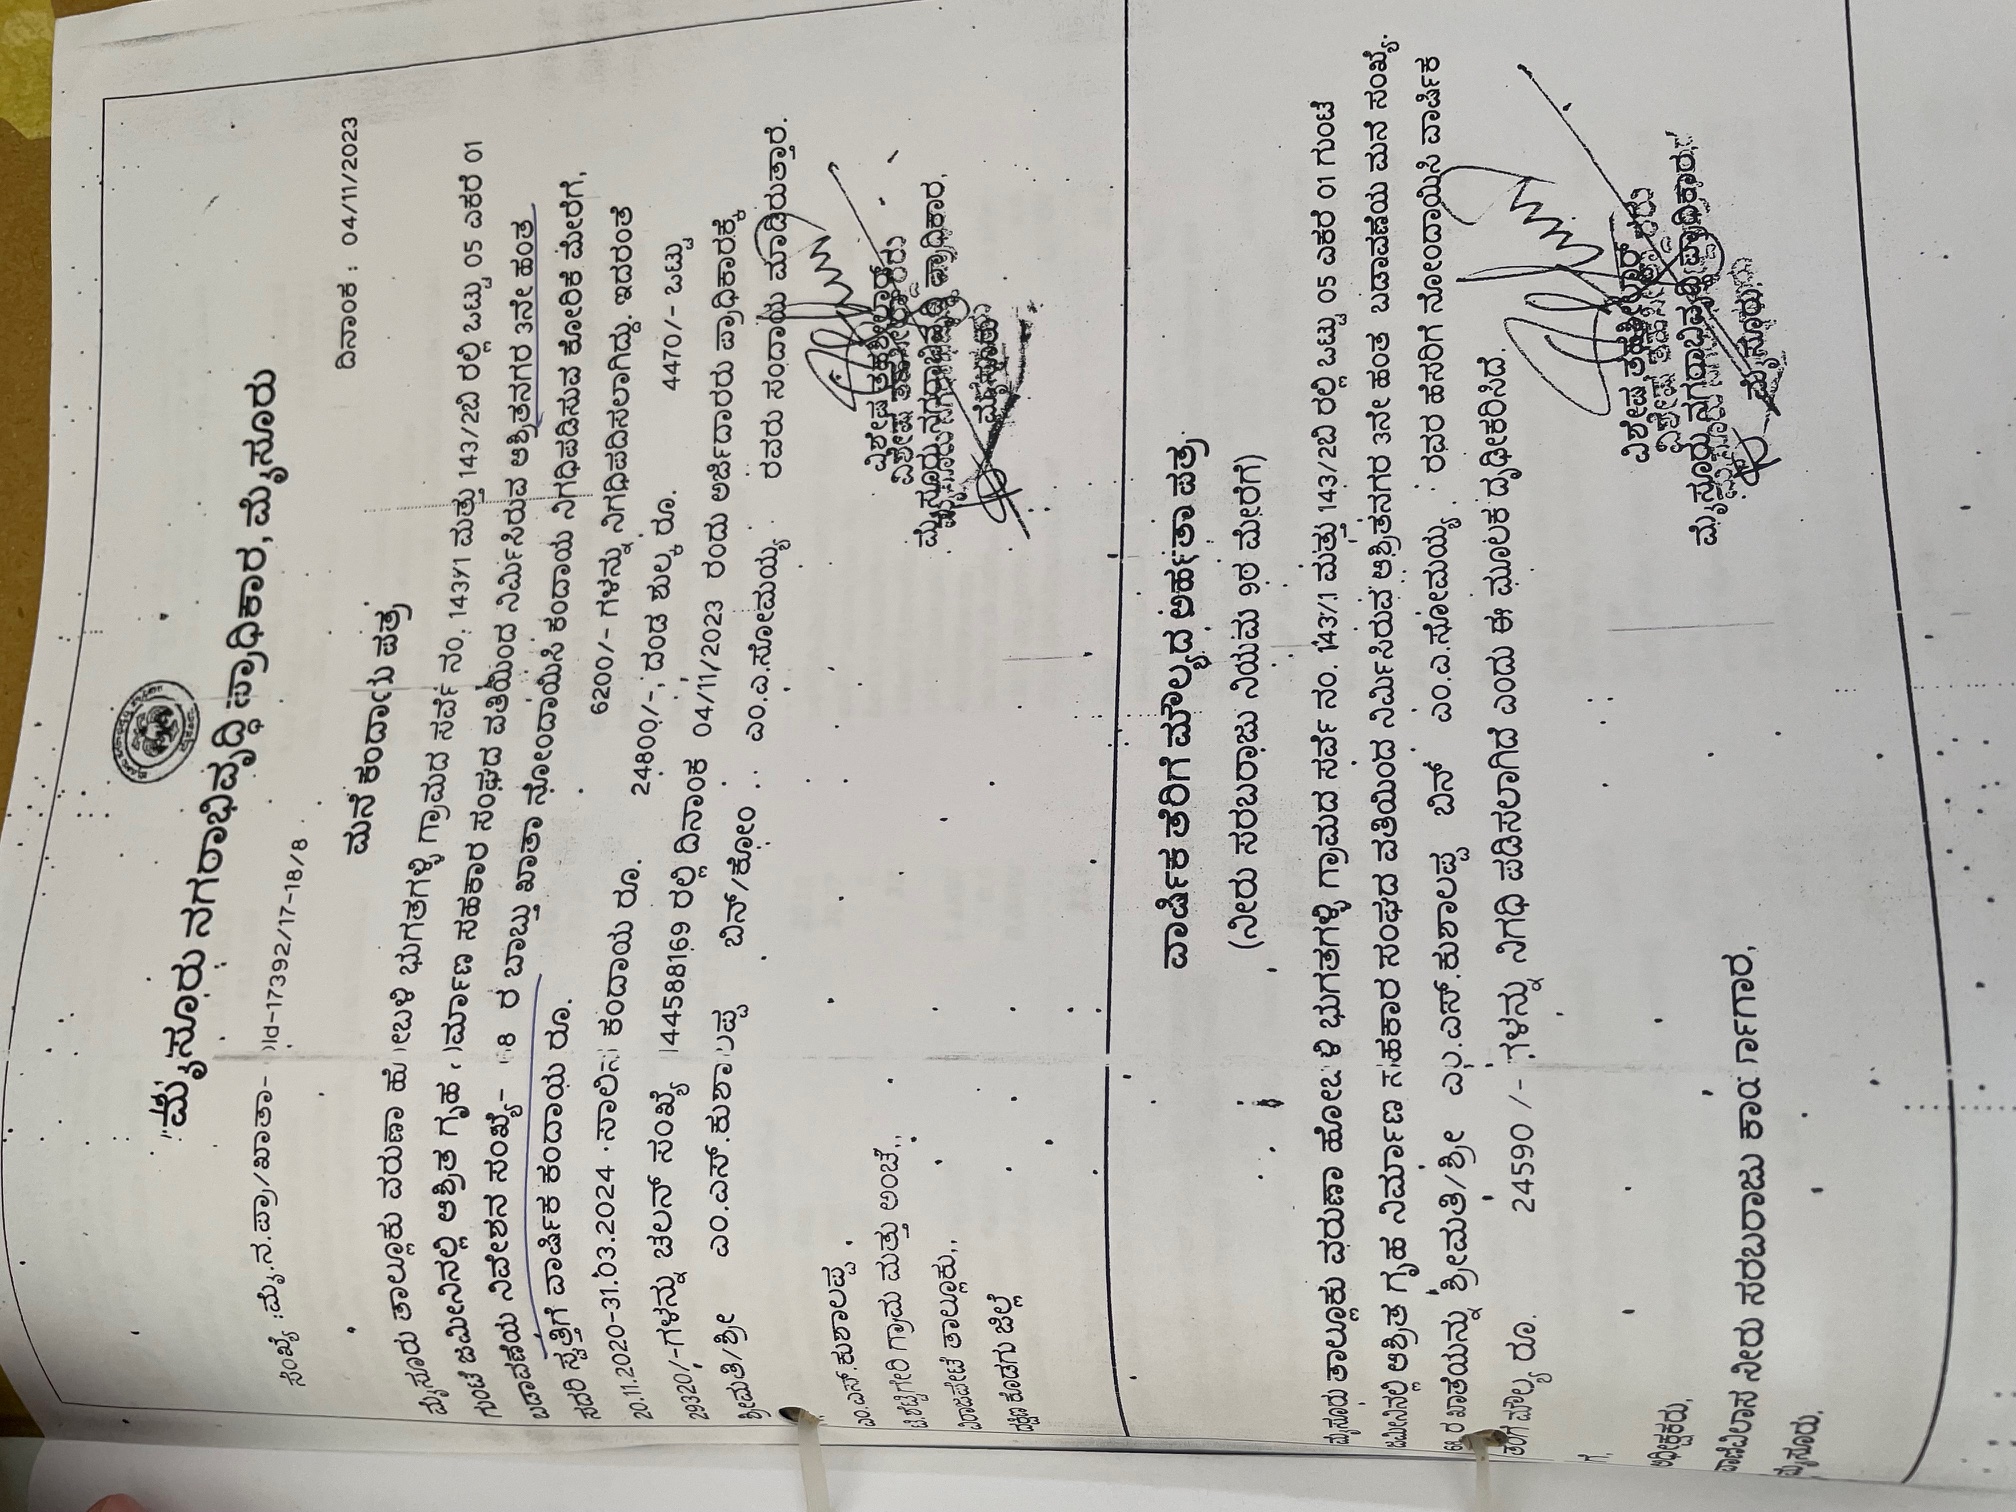 "ಮೈಸೂರು ನಗರಾಭಿವೃದ್ಧಿ ಪ್ರಾಧಿಕಾರ, ಮೈಸೂರು
ಸಂಖ್ಯೆ :ಮೈ.ನ.ಪ್ರಾ/ಖಾತಾ- Id-17392/17-18/8
ದಿನಾಂಕ : 04/11/2023
ಮನೆ ಕಂದಾಯ ಪತ್ರ
ಮೈಸೂರು ತಾಲ್ಲೂಕು ವರುಣಾ ಹೋಬಳಿ ಭುಗತಗಳ್ಳಿ ಗ್ರಾಮದ ಸರ್ವೆ ನಂ. 143/1 ಮತ್ತು 143/2ಬಿ ರಲ್ಲಿ ಒಟ್ಟು 05 ಎಕರೆ 01
ಗುಂಟೆ ಜಮೀನಿನಲ್ಲಿ ಆಶ್ರಿತ ಗೃಹ ನಿರ್ಮಾಣ ಸಹಕಾರ ಸಂಘದ ವತಿಯಿಂದ ನಿರ್ಮಿಸಿರುವ ಆಶ್ರಿತನಗರ 3ನೇ ಹಂತ
ಬಡಾವಣೆಯ ನಿವೇಶನ ಸಂಖ್ಯೆ- 8 ರ ಬಾಬ್ತು ಖಾತಾ ನೋಂದಾಯಿಸಿ ಕಂದಾಯ ನಿಗಧಿಪಡಿಸುವ ಕೋರಿಕೆ ಮೇರೆಗೆ,
ಸದರಿ ಸ್ವತ್ತಿಗೆ ವಾರ್ಷಿಕ ಕಂದಾಯ ರೂ. 6200/- ಗಳನ್ನು ನಿಗಧಿಪಡಿಸಲಾಗಿದ್ದು. ಇದರಂತೆ
20.11.2020-31.03.2024 ಸಾಲಿನ ಕಂದಾಯ ರೂ. 24800/-, ದಂಡ ಶುಲ್ಕ ರೂ. 4470/- ಒಟ್ಟು
29320/-ಗಳನ್ನು ಚಲನ್ ಸಂಖ್ಯೆ 144588169 ರಲ್ಲಿ ದಿನಾಂಕ 04/11/2023 ರಂದು ಅರ್ಜಿದಾರರು ಪ್ರಾಧಿಕಾರಕ್ಕೆ
ಶ್ರೀಮತಿ/ಶ್ರೀ ಎಂ.ಎಸ್.ಕುಶಾಲಪ್ಪ ಬಿನ್/ಕೋಂ ಎಂ.ಎ.ಸೋಮಯ್ಯ ರವರು ಸಂದಾಯ ಮಾಡಿರುತ್ತಾರೆ.
ವಿಶೇಷ ತಹಶೀಲ್ದಾರ್
ಮೈಸೂರು ನಗರಾಭಿವೃದ್ಧಿ ಪ್ರಾಧಿಕಾರ,
ಮೈಸೂರು
ಎಂ.ಎಸ್.ಕುಶಾಲಪ್ಪ
ಟಿ.ಶೆಟ್ಟಿಗೇರಿ ಗ್ರಾಮ ಮತ್ತು ಅಂಚೆ,,
ವಿರಾಜಪೇಟೆ ತಾಲ್ಲೂಕು,,
ದಕ್ಷಿಣ ಕೊಡಗು ಜಿಲ್ಲೆ
ವಾರ್ಷಿಕ ತೆರಿಗೆ ಮೌಲ್ಯದ ಅರ್ಹತಾ ಪತ್ರ
(ನೀರು ಸರಬರಾಜು ನಿಯಮ 9ರ ಮೇರೆಗೆ)
ಮೈಸೂರು ತಾಲ್ಲೂಕು ವರುಣಾ ಹೋಬಳಿ ಭುಗತಗಳ್ಳಿ ಗ್ರಾಮದ ಸರ್ವೆ ನಂ. 143/1 ಮತ್ತು 143/2ಬಿ ರಲ್ಲಿ ಒಟ್ಟು 05 ಎಕರೆ 01 ಗುಂಟೆ
ಜಮೀನಿನಲ್ಲಿ ಆಶ್ರಿತ ಗೃಹ ನಿರ್ಮಾಣ ಸಹಕಾರ ಸಂಘದ ವತಿಯಿಂದ ನಿರ್ಮಿಸಿರುವ ಆಶ್ರಿತನಗರ 3ನೇ ಹಂತ ಬಡಾವಣೆಯ ಮನೆ ಸಂಖ್ಯೆ.
ರ ಖಾತೆಯನ್ನು ಶ್ರೀಮತಿ/ಶ್ರೀ ಎಂ.ಎಸ್.ಕುಶಾಲಪ್ಪ ಬಿನ್ ಎಂ.ಎ.ಸೋಮಯ್ಯ ರವರ ಹೆಸರಿಗೆ ನೋಂದಾಯಿಸಿ ವಾರ್ಷಿಕ
ತೆರಿಗೆ ಮೌಲ್ಯ ರೂ. 24590 /- ಗಳನ್ನು ನಿಗಧಿ ಪಡಿಸಲಾಗಿದೆ ಎಂದು ಈ ಮೂಲಕ ದೃಢೀಕರಿಸಿದೆ.
ವಿಶೇಷ ತಹಶೀಲ್ದಾರ್
ಮೈಸೂರು ನಗರಾಭಿವೃದ್ಧಿ ಪ್ರಾಧಿಕಾರ,
ಮೈಸೂರು.
ಗೆ,
ಅಧೀಕ್ಷಕರು,
ವಾಣಿವಿಲಾಸ ನೀರು ಸರಬರಾಜು ಕಾರ್ಯಾಗಾರ,
ಮೈಸೂರು.